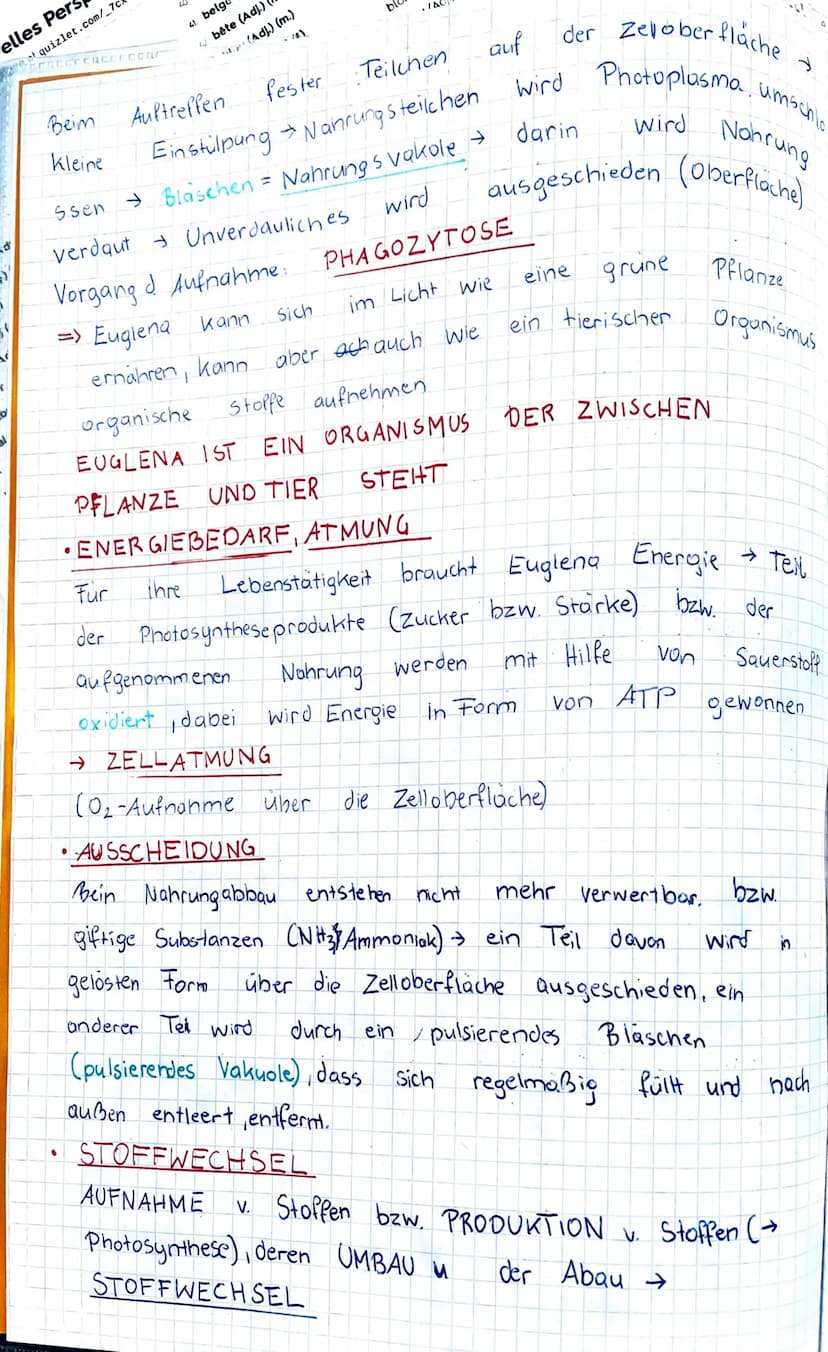 elles Pers
quizlet.com/_7cx
belge
bête (Adj.) (
(Adj.) (m.)
Beim Auftreffen fester Teilchen auf der Zelloberfläche →
kleine Einstülpung → Nahrungsteilchen wird Photoplasma umschlo
ssen → Bläschen = Nahrungsvakole → darin wird Nahrung
verdaut → Unverdauliches wird ausgeschieden (Oberfläche)
Vorgang d Aufnahme: PHAGOZYTOSE
=> Euglena kann sich im Licht wie eine grüne Pflanze
ernähren, kann aber ach auch wie ein tierischer Organismus
organische Stoffe aufnehmen
EUGLENA IST EIN ORGANISMUS DER ZWISCHEN
PFLANZE UND TIER STEHT
• ENERGIEBEDARF, ATMUNG
Für ihre Lebenstätigkeit braucht Euglena Energie → Teil
der Photosyntheseprodukte (Zucker bzw. Stärke) bzw. der
aufgenommenen Nahrung werden mit Hilfe von Sauerstoff
oxidiert, dabei wird Energie in Form von ATP gewonnen
→ ZELLATMUNG
(O₂-Aufnahme über die Zelloberfläche)
• AUSSCHEIDUNG
Bein Nahrungabbau entstehen nicht mehr verwertbar. bzw.
giftige Substanzen (NH₃/Ammoniak) → ein Teil davon wird in
gelösten Form über die Zelloberfläche ausgeschieden, ein
anderer Teil wird durch ein pulsierendes Bläschen
(pulsierendes Vakuole), dass sich regelmäßig füllt und nach
außen entleert, entfernt.
• STOFFWECHSEL
AUFNAHME v. Stoffen bzw. PRODUKTION v. Stoffen (→
Photosynthese), deren UMBAU u der Abau →
STOFFWECHSEL